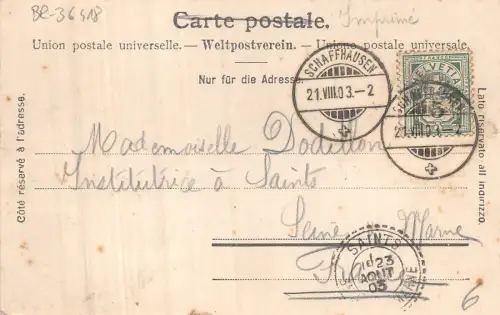 BE-36418
Carte postale.
Imprimé
Union postale universelle. — Weltpostverein. — Unione postale universale.
Nur für die Adresse.
SCHAFFHAUSEN
21.VIII.03.-2
HELVETIA
5
21.VIII.03.-2
Côté réservé à l'adresse.
Lato riservato all indirizzo.
Mademoiselle Dodillon
Institutrice à Saints
Seine Marne
SAINTS
23
AOUT
03
MARNE
6